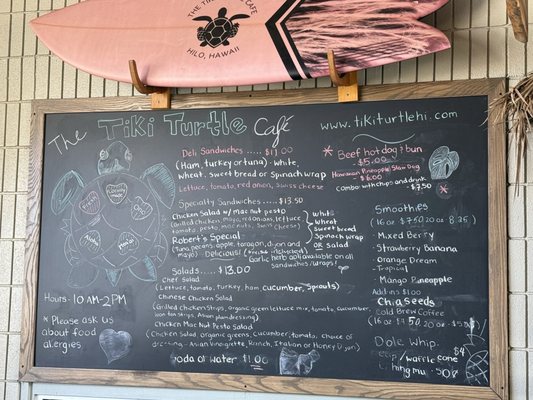 THE TIKI TURTLE CAFE
HILO, HAWAII
The Tiki Turtle Café
www.tikiturtlehi.com
Deli Sandwiches ..... $11.00
(Ham, turkey or tuna) - white,
wheat, sweet bread or Spinach wrap
Lettuce, tomato, red onion, Swiss cheese
Specialty Sandwiches ..... $13.50
Chicken Salad w/ mac nut pesto
(Grilled chicken, mayo, red onions, lettuce
tomato, pesto,
white
wheat
Sweet bread
Spinach wrap
OR Salad
Robert's Special
(Tuna, pecans, apple, tarragon, dijon and
mayo) Delicious!
Garlic herb aoli available on all
sandwiches/wraps!
Salads ..... $13.00
Chef Salad
(Lettuce, tomato, turkey, ham, cucumber, Sprouts)
Chinese Chicken Salad
(Grilled chicken strips, organic green lettuce mix, tomato, cucumber
won ton strips, Asian plum dressing)
Chicken Mac Nut Pesto Salad
(Chicken Salad, organic greens, Cucumber, tomato, choice of
dressing - Asian Vinegrette, Ranch, Italian or Honey Dijon)
Soda or water $1.00
Aloha
Hawaii
Hours: 10AM-2PM
* Please ask us
about food
allergies.
* Beef hot dog & bun
- $5.00 -
Hawaiian Pineapple Slaw Dog
* $6.00
Combo with chips and drink
- $7.50
Smoothies
(16 oz 20 oz 8.25)
- Mixed Berry
- Strawberry Banana
- Orange Dream
- Tropical
- Mango Pineapple
Add ins $1.00
Chia seeds
Cold Brew Coffee
Dole Whip
waffle cone